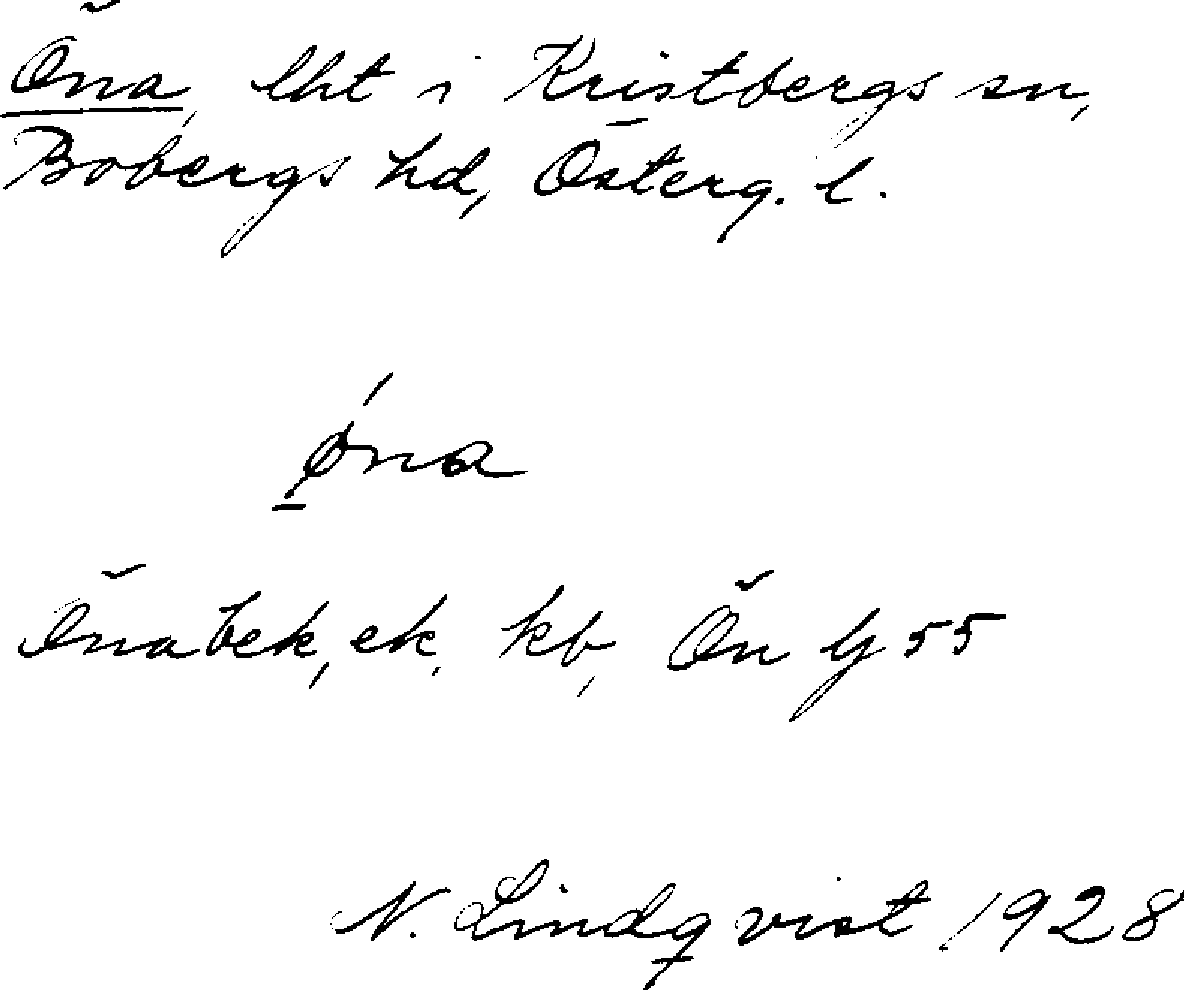 Öna, lht i Kristbergs sn,
Bobergs hd, Österg. l.
ǿna
Önabek, ek, kb, Ön G 55
N. Lindqvist 1928